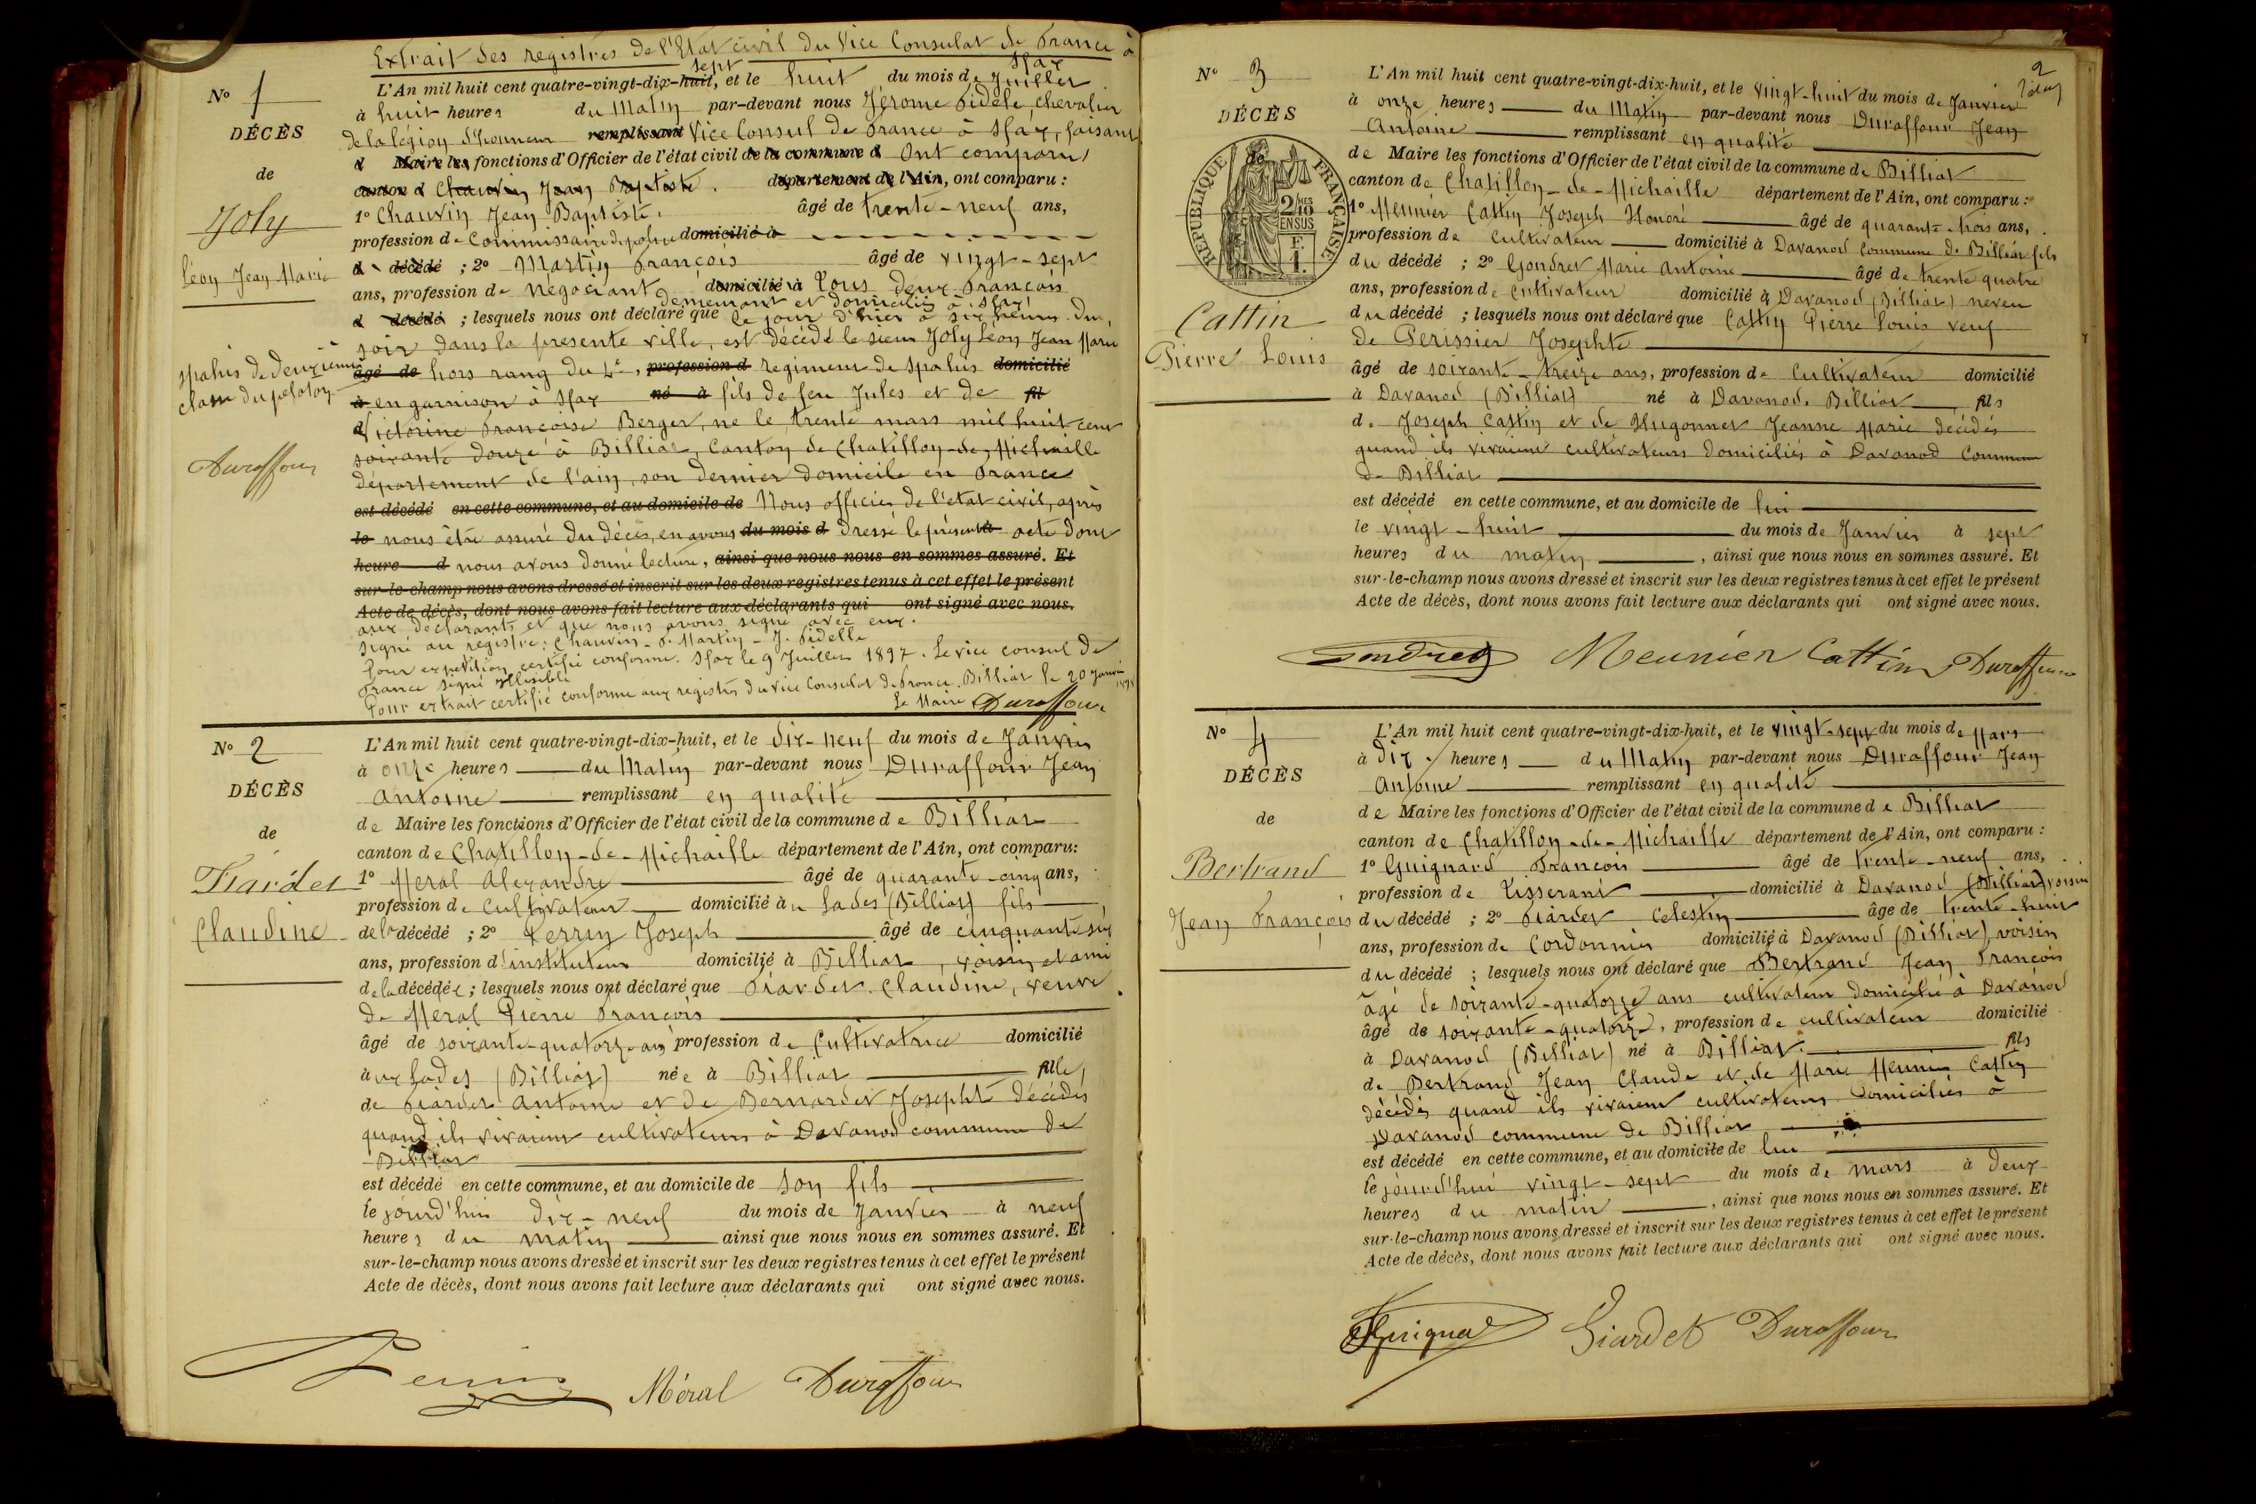 Extrait des registres de l'Etat civil du Vice Consulat de France à
Sfax
N° 1
DÉCÈS
de
Joly
Léon Jean Marie
spahis de deuxième
classe du peloton
Duraffour
sept
L'An mil huit cent quatre-vingt-dix-huit, et le huit du mois de Juillet
à huit heures du Matin par-devant nous Jérome Fidèle, chevalier
de la légion d'honneur remplissant Vice Consul de France à Sfax, faisant
d Maire les fonctions d'Officier de l'état civil de la commune d Ont comparu
canton d Chauvin Jean Baptiste. département de l'Ain, ont comparu :
1° Chauvin Jean Baptiste. âgé de trente-neuf ans,
profession de Commissaire de police domicilié à
d décédé ; 2° Martin François âgé de vingt-sept
ans, profession de négociant domicilié à Tous deux Français
demeurant et domiciliés à Sfax
d décédé ; lesquels nous ont déclaré que le jour d'hier à six heures du
soir dans la présente ville, est décédé le sieur Joly Léon Jean Marie
âgé de hors rang du 4e, profession d régiment de spahis domicilié
à en garnison à Sfax né à fils de feu Jules et de fil
d Victorine Françoise Berger, né le trente mars mil huit cent
soixante douze à Billiat, canton de Chatillon-de-Michaille
département de l'ain, son dernier domicile en France
est décédé en cette commune, et au domicile de Nous officier de l'état civil, après
le nous être assuré du décès, en avons du mois d dressé le présent à acte dont
heure d nous avons donné lecture, ainsi que nous nous en sommes assuré. Et
sur-le-champ nous avons dressé et inscrit sur les deux registres tenus à cet effet le présent
Acte de décès, dont nous avons fait lecture aux déclarants qui ont signé avec nous.
aux déclarants et que nous avons signé avec eux.
Signé au registre : Chauvin - F. Martin - J. Fidelle
Pour expédition certifié conforme. Sfax le 9 Juillet 1897. Le vice consul de
France signé illisible
Pour extrait certifié conforme aux registres du Vice Consulat de France. Billiat le 20 Janvier 1898
Le Maire Duraffour
N° 2
DÉCÈS
de
Fiardet
Claudine
L'An mil huit cent quatre-vingt-dix-huit, et le dix-neuf du mois de Janvier
à onze heures du Matin par-devant nous Duraffour Jean
Antoine remplissant en qualité
de Maire les fonctions d'Officier de l'état civil de la commune de Billiat
canton de Chatillon-de-Michaille département de l'Ain, ont comparu:
1° Meral Alexandre âgé de quarante-cinq ans,
profession de Cultivateur domicilié à Lades (Billiat) fils
de la décédé ; 2° Perrin Joseph âgé de cinquante six
ans, profession d'instituteur domicilié à Billiat, voisin et ami
de la décédée ; lesquels nous ont déclaré que Fiardet Claudine, veuve
de Meral Pierre François
âgé de soixante-quatorze ans profession de Cultivatrice domicilié
à Lades (Billiat) née à Billiat fille
de Fiardet Antoine et de Bernardet Josephte décédés
quand ils vivaient cultivateurs à Davanod commune de
Billiat
est décédé en cette commune, et au domicile de son fils
le jourd'hui dix-neuf du mois de Janvier à neuf
heures du matin ainsi que nous nous en sommes assuré. Et
sur-le-champ nous avons dressé et inscrit sur les deux registres tenus à cet effet le présent
Acte de décès, dont nous avons fait lecture aux déclarants qui ont signé avec nous.
Perrin Méral Duraffour
2
N° 3
DÉCÈS
de
RÉPUBLIQUE FRANÇAISE
2/10 MES
EN SUS
F.
1.
Cattin
Pierre Louis
L'An mil huit cent quatre-vingt-dix-huit, et le vingt-huit du mois de Janvier
à onze heures du Matin par-devant nous Duraffour Jean
Antoine remplissant en qualité
de Maire les fonctions d'Officier de l'état civil de la commune de Billiat
canton de Chatillon-de-Michaille département de l'Ain, ont comparu :
1° Meunier Cattin Joseph Honoré âgé de quarante-trois ans,
profession de cultivateur domicilié à Davanod commune de Billiat fils
du décédé ; 2° Gondret Marie Antoine âgé de trente quatre
ans, profession de cultivateur domicilié à Davanod (Billiat) neveu
du décédé ; lesquels nous ont déclaré que Cattin Pierre Louis veuf
de Perissier Josephte
âgé de soixante-treize ans, profession de Cultivateur domicilié
à Davanod (Billiat) né à Davanod. Billiat fils
de Joseph Cattin et de Hugonnet Jeanne Marie décédés
quand ils vivaient cultivateurs domiciliés à Davanod Commune
de Billiat
est décédé en cette commune, et au domicile de lui
le vingt-huit du mois de Janvier à sept
heures du matin, ainsi que nous nous en sommes assuré. Et
sur-le-champ nous avons dressé et inscrit sur les deux registres tenus à cet effet le présent
Acte de décès, dont nous avons fait lecture aux déclarants qui ont signé avec nous.
Gondret Meunier Cattin Duraffour
N° 4
DÉCÈS
de
Bertrand
Jean François
L'An mil huit cent quatre-vingt-dix-huit, et le vingt-sept du mois de Mars
à dix heures du Matin par-devant nous Duraffour Jean
Antoine remplissant en qualité
de Maire les fonctions d'Officier de l'état civil de la commune de Billiat
canton de Chatillon-de-Michaille département de l'Ain, ont comparu :
1° Guignard François âgé de trente-neuf ans,
profession de Tisserand domicilié à Davanod (Billiat) voisin
du décédé ; 2° Fiardet Celestin âgé de trente-huit
ans, profession de Cordonnier domicilié à Davanod (Billiat), voisin
du décédé ; lesquels nous ont déclaré que Bertrand Jean François
âgé de soixante-quatorze ans cultivateur domicilié à Davanod
âgé de soixante-quatorze, profession de cultivateur domicilié
à Davanod (Billiat) né à Billiat. fils
de Bertrand Jean Claude et de Marie Meunier Cattin
décédés quand ils vivaient cultivateurs domiciliés à
Davanod commune de Billiat
est décédé en cette commune, et au domicile de lui
le jourd'hui vingt-sept du mois de mars à deux
heures du matin, ainsi que nous nous en sommes assuré. Et
sur-le-champ nous avons dressé et inscrit sur les deux registres tenus à cet effet le présent
Acte de décès, dont nous avons fait lecture aux déclarants qui ont signé avec nous.
Guignard Giardet Duraffour